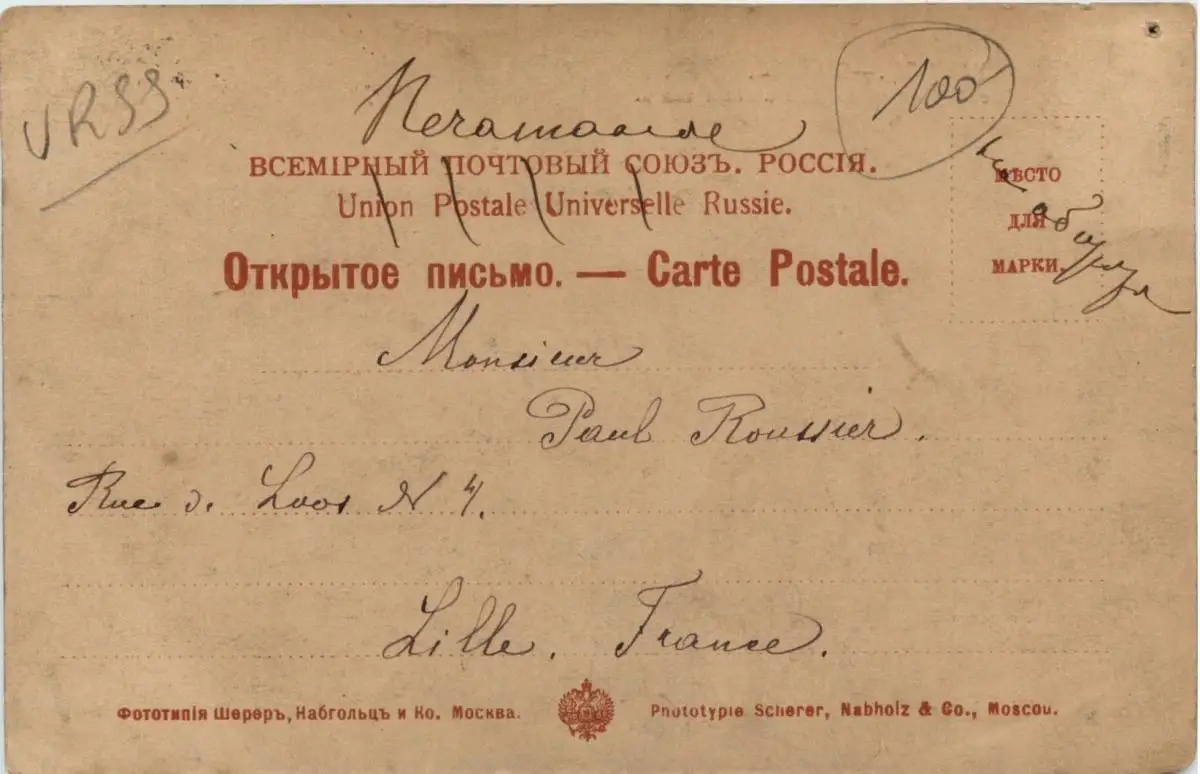 URSS
100
Печатное
ВСЕМІРНЫЙ ПОЧТОВЫЙ СОЮЗЪ. РОССІЯ.
Union Postale Universelle Russie.
Открытое письмо. — Carte Postale.
МѢСТО
ДЛЯ
МАРКИ.
на обороте
Monsieur
Paul Roussier.
Rue d. Loos N 4.
Lille. France.
Фототипія Шереръ, Набгольцъ и Ко. Москва.
Phototypie Scherer, Nabholz & Co., Moscou.